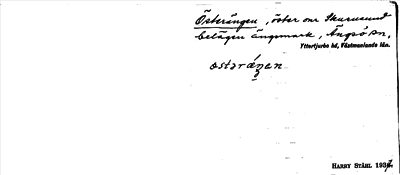 Österängen, öster om Skarnsund
belägen ängsmark, Ängsö sn,
Yttertjurbo hd, Västmanlands län.
ɷstəräŋen
HARRY STÅHL 1937.